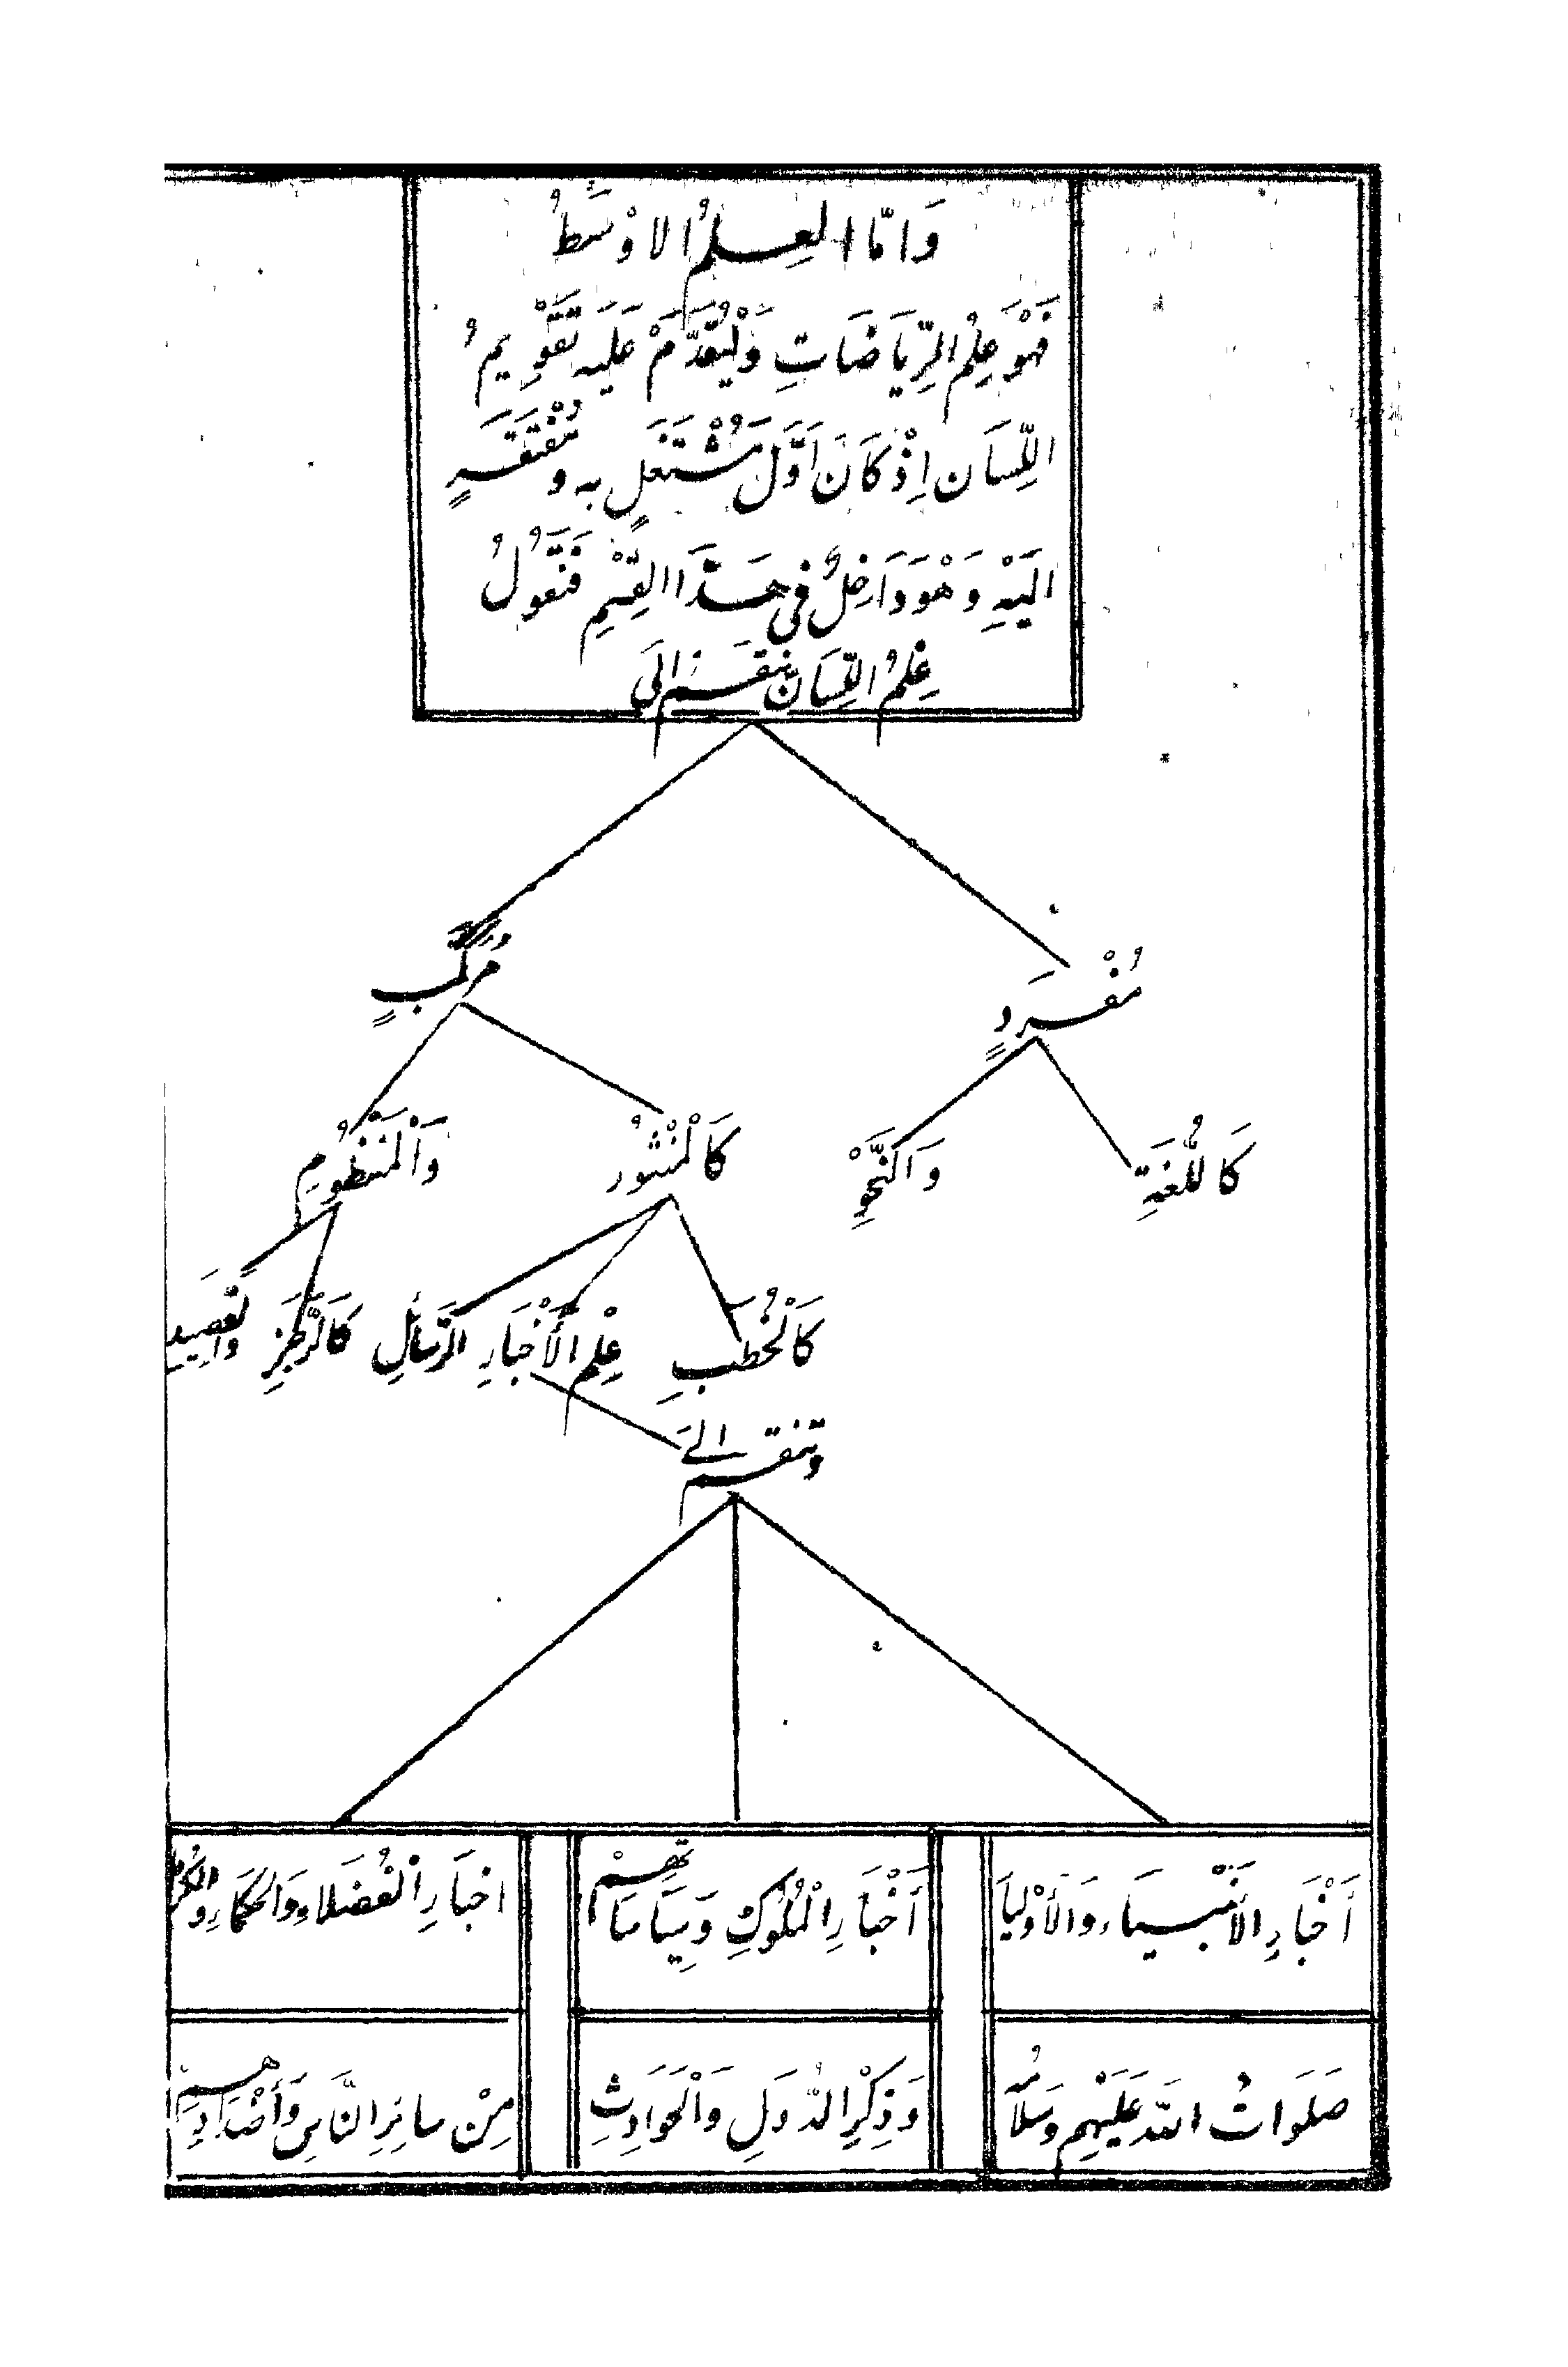 وَامّا العِلمُ الاوْسَطُ
فَهْوَ عِلمُ الرِّيَاضَاتِ وَلْيُقَدَّمْ عَلَيه تَقَوْيمُ
اللِّسَان اِذْ كَانَ اَوَّلَ مُشْتَغَلٍ به وَمُفْتَقَرٍ
اِلَيْهِ وَهْوَ دَاخِلٌ فى هَذَا القِسْمِ فَنَقُولُ
عِلمُ اللِّسَان ينقَسمُ اِلَى
مُركَّبٍ
مُفْرَدٍ
كَاللُّغَةِ
وَالنَّحْوِ
كَالْمَنْثوُر
وَالْمَنْظُومِ
كَالْخُطَبِ
عِلْم الأَخْبَارِ
الرَّسَائلِ
كَالرَّجَزِ
وتنقسم الى
أَخْبَارِ الأَنْبيَاء وَالأَوْليَا
صَلَوَاتُ اللهِ عَلَيْهِم وَسَلَامُه
أَخْبَارِ الْمُلُوكِ وَسِيَاسَاتهِمْ
وَذِكْرِ الدُّوَلِ وَالْحَوَادِثِ
اخبَارِ الفُضَلاءِ وَالحكَمَاءِ
مِنْ سَائِرِ النَّاسِ وَأَضْدَادِهِم